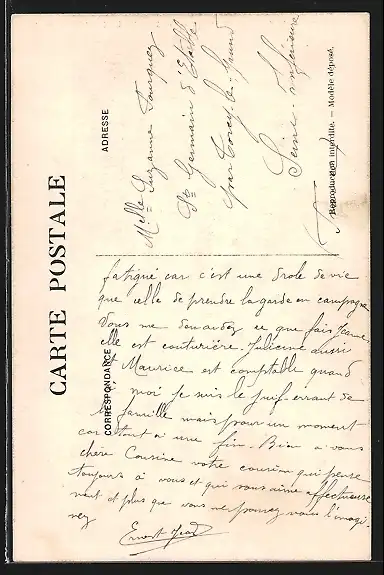 CARTE POSTALE
CORRESPONDANCE
ADRESSE
Mlle Suzanne Fourquez
St Germain d'Etable
par Torcy-le-Grand
Seine-Inférieure
Reproduction interdite. — Modèle déposé.
fatigué car c'est une drole de vie
que celle de prendre la garde en campagne
Vous me demandez ce que fais Jeanne
elle est couturière. Julienne aussi
et Maurice est comptable quand
à moi je suis le Juif-errant de
la famille mais pour un moment
car tout à une fin. Bien à vous
chère Cousine votre cousin qui pense
toujours à vous et qui vous aime affectueuse
ment et plus que vous ne pouvez vous l'imagi-
nez
Ernest